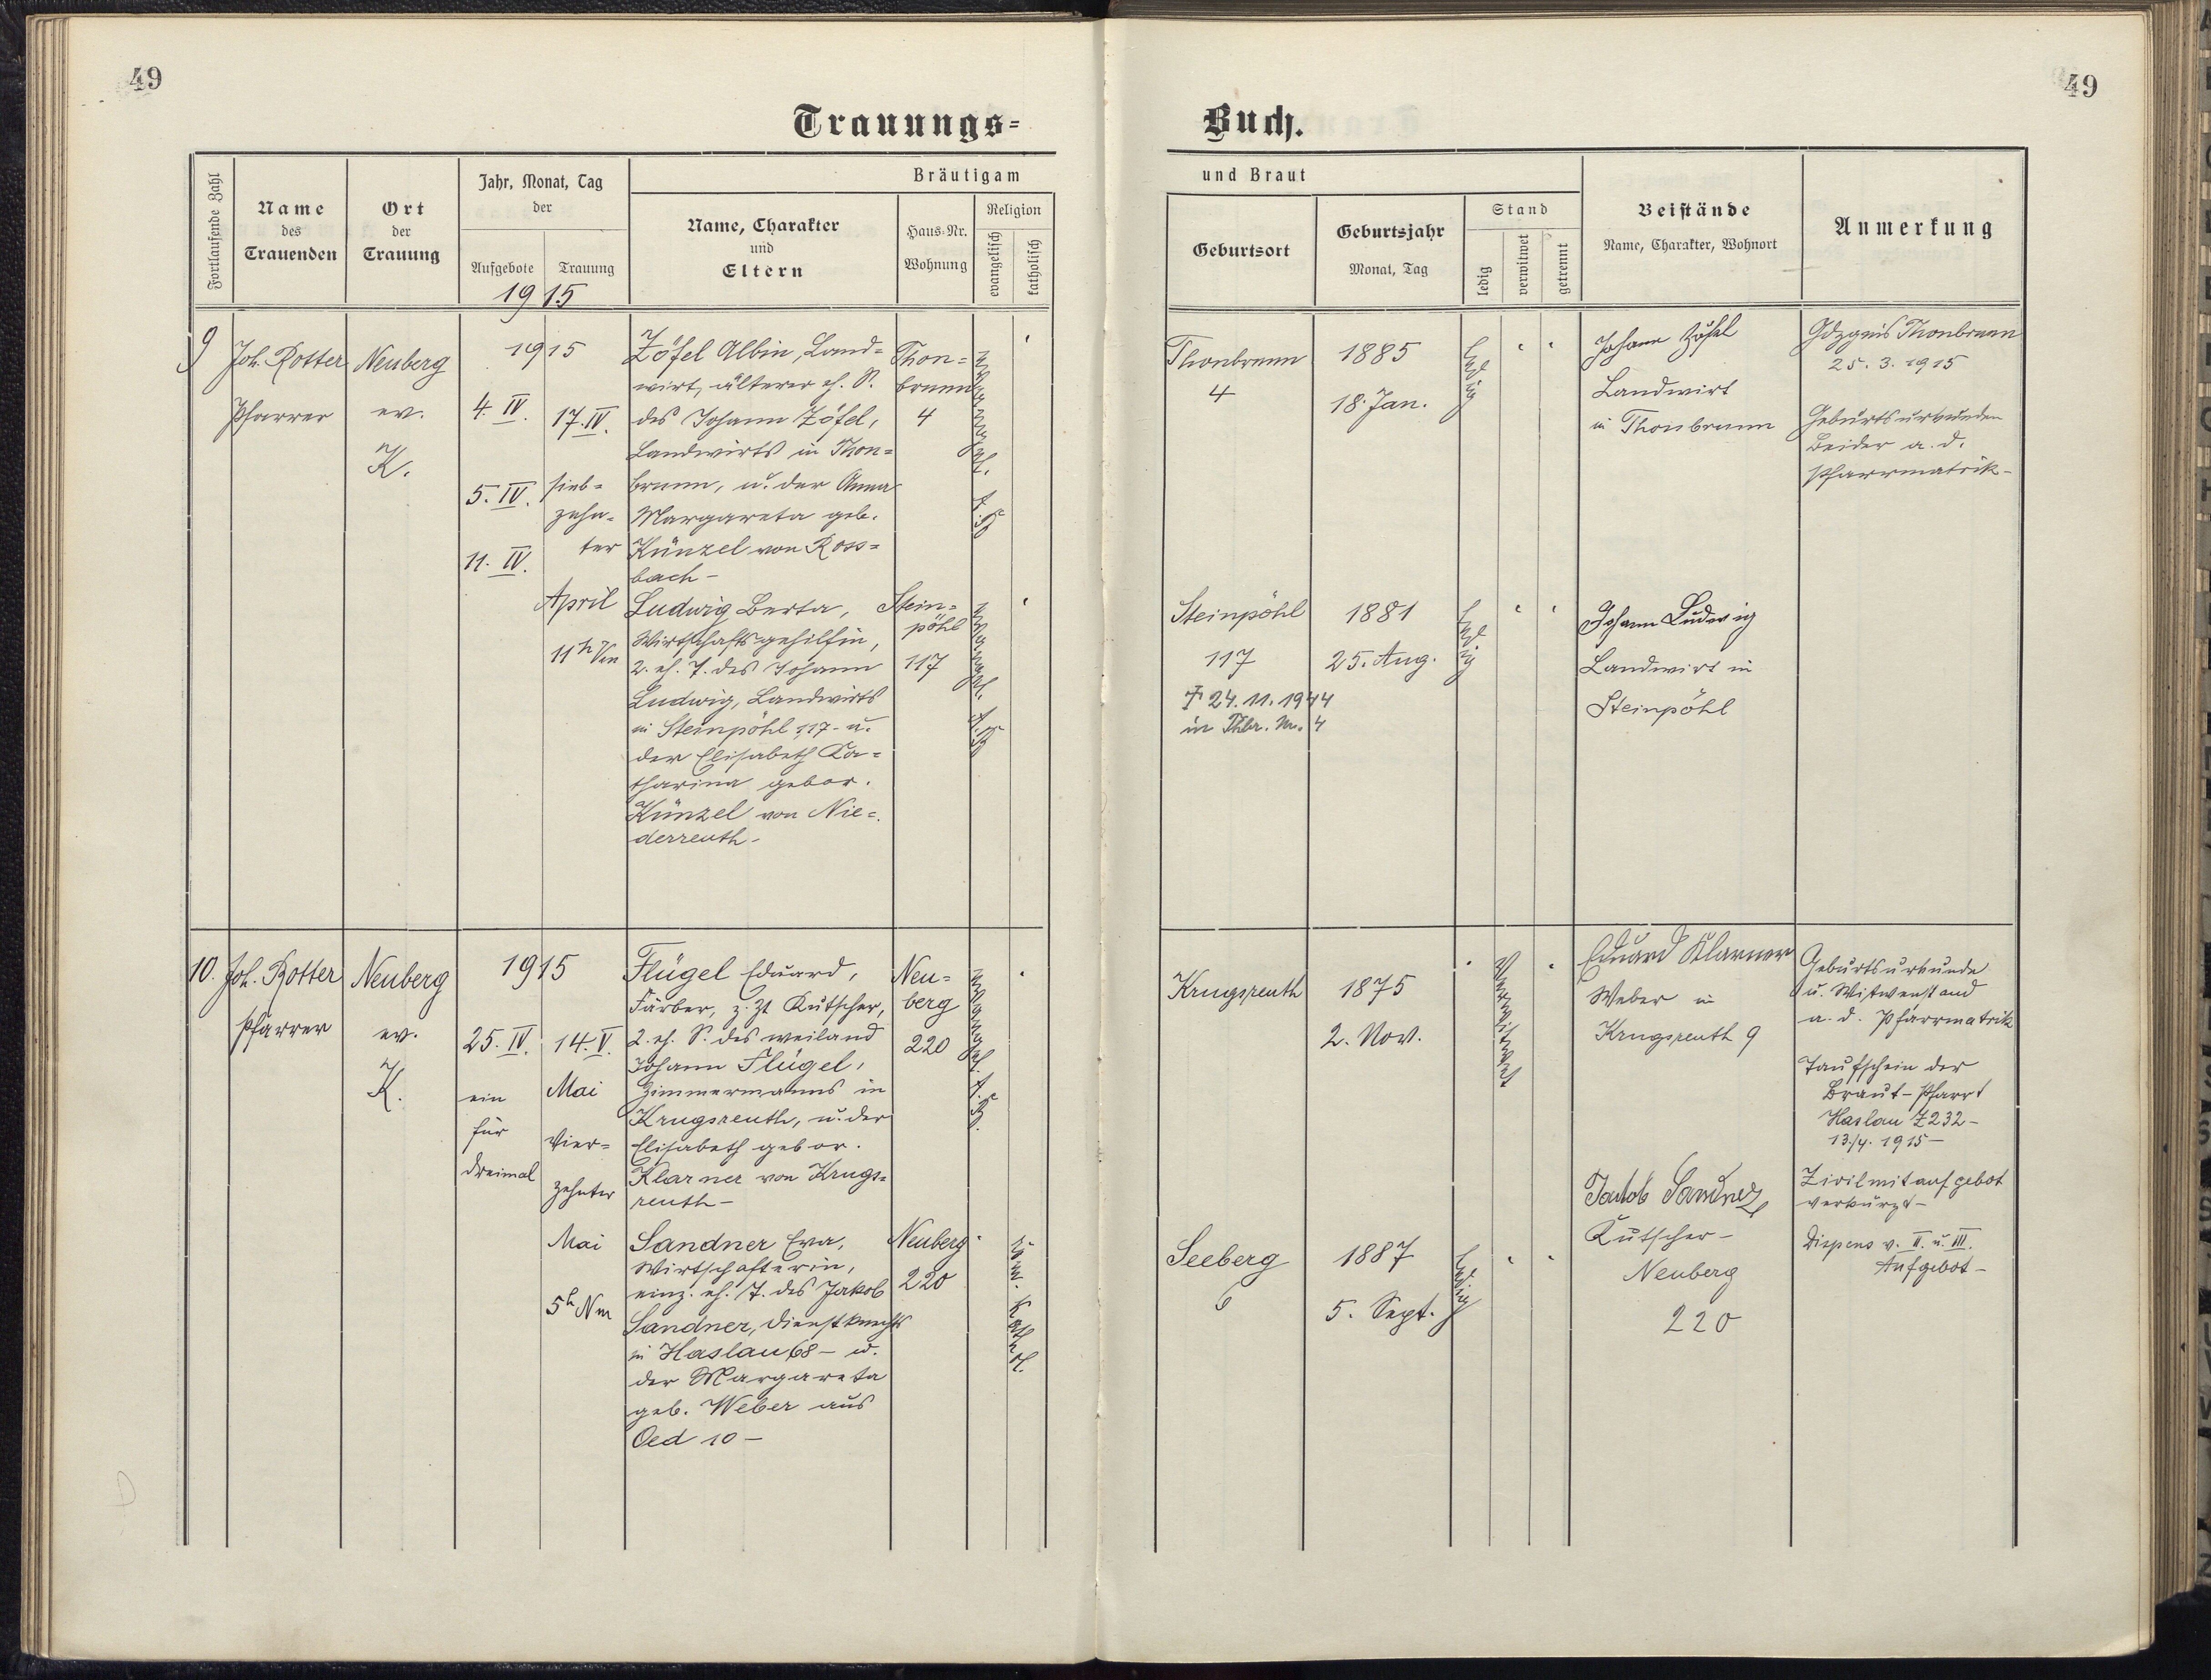 49
Trauungs=
Fortlaufende Zahl
Name
des
Trauenden
Ort
der
Trauung
Jahr, Monat, Tag
der
Aufgebote
Trauung
1915
Bräutigam
Name, Charakter
und
Eltern
Haus-Nr.
Wohnung
Religion
evangelisch
katholisch
9
Joh. Rotter
Pfarrer
Neuberg
ev.
K.
1915
4. IV.
5. IV.
11. IV.
17. IV.
sieb=
zehn=
ter
April
11h Vm
Zöfel Albin, Land=
wirt, älterer eh. S.
des Johann Zöfel,
Landwirts in Thon=
brunn, u. der Anna
Margareta geb.
Künzel von Ross=
bach -
Thon=
brunn
4
evangel.
A.B.
Ludwig Berta,
Wirtschaftsgehilfin,
2. eh. T. des Johann
Ludwig, Landwirts
in Steinpöhl 117 - u.
der Elisabeth Ka=
tharina gebor.
Künzel von Nie=
derreuth -
Stein=
pöhl
117
evangel.
A.B.
10.
Joh. Rotter
Pfarrer
Neuberg
ev.
K.
1915
25. IV.
ein
für
dreimal
14. V.
Mai
Vier=
zehnter
Mai
5h Nm
Flügel Eduard,
Färber, z. Zt Kutscher,
2. eh. S. des weiland
Johann Flügel,
Zimmermanns in
Krugsreuth, u. der
Elisabeth gebor.
Klarner von Krugs=
reuth -
Neu=
berg
220
evangel.
A.B.
Sandner Eva,
Wirtschafterin,
einz. eh. T. des Jakob
Sandner, Dienstknechts
in Haslau 68 - u.
der Margareta
geb. Weber aus
Oed 10 -
Neuberg
220
röm. kathol.
49
Buch.
und Braut
Geburtsort
Geburtsjahr
Monat, Tag
Stand
ledig
verwitwet
getrennt
Beistände
Name, Charakter, Wohnort
Anmerkung
Thonbrunn
4
1885
18. Jan.
ledig
Johann Zöfel
Landwirt
in Thonbrunn
Gdzgnis Thonbrunn
25. 3. 1915
Geburtsurkunden
Beider a. d.
Pfarrmatrik -
Steinpöhl
117
† 24. 11. 1944
in Thbr. Nr. 4
1881
25. Aug.
ledig
Johann Ludwig
Landwirt in
Steinpöhl
Krugsreuth
1875
2. Nov.
verwitwet
Eduard Klarner
Weber in
Krugsreuth 9
Geburtsurkunde
u. Witwenstand
a. d. Pfarrmatrik
Taufschein der
Braut - Pfarrt
Haslau Z 232 -
13./4. 1915 -
Zivilmitaufgebot
verkürzt -
Dispens v. II. u. III.
Aufgebot -
Seeberg
6
1887
5. Sept.
ledig
Jakob Sandner
Kutscher -
Neuberg
220